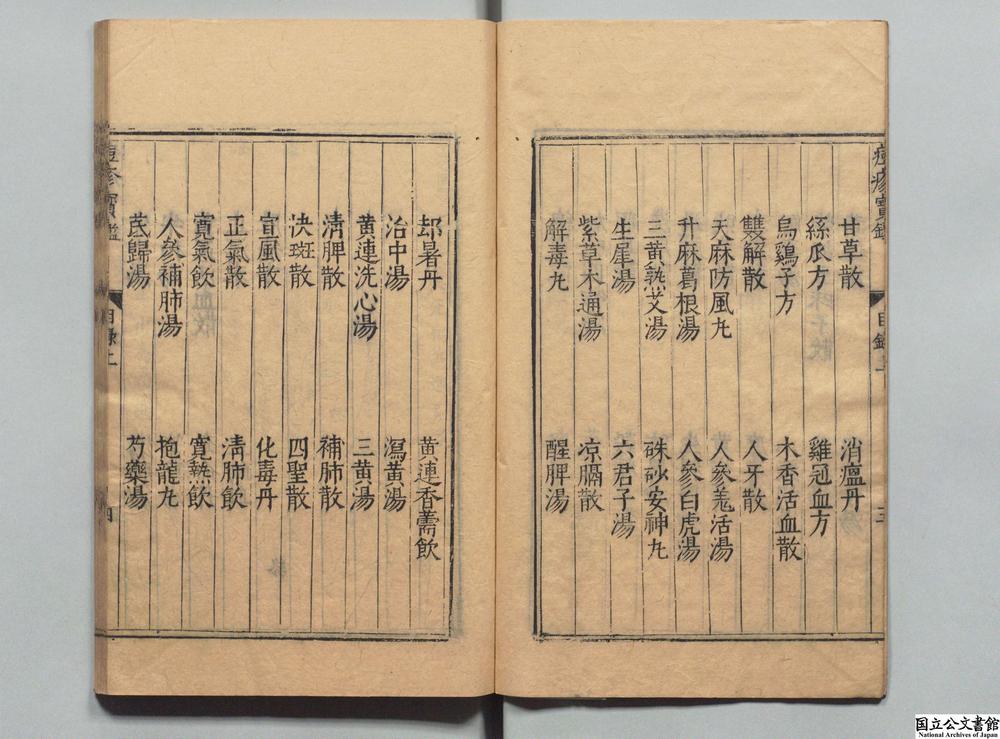 痘疹寶鑑
目錄上
三
甘草散
消瘟丹
絲瓜方
雞冠血方
烏鷄子方
木香活血散
雙解散
人牙散
天麻防風丸
人參羗活湯
升麻葛根湯
人參白虎湯
三黄熟艾湯
硃砂安神丸
生犀湯
六君子湯
紫草木通湯
凉膈散
解毒丸
醒脾湯
却暑丹
黄連香薷飲
治中湯
瀉黄湯
黄連洗心湯
三黄湯
淸脾散
補肺散
決斑散
四聖散
宣風散
化毒丹
正氣散
淸肺飲
寛氣飲
寛熱飲
人參補肺湯
抱龍丸
芪歸湯
芍藥湯
痘疹寶鑑
目錄上
四
国立公文書館
National Archives of Japan